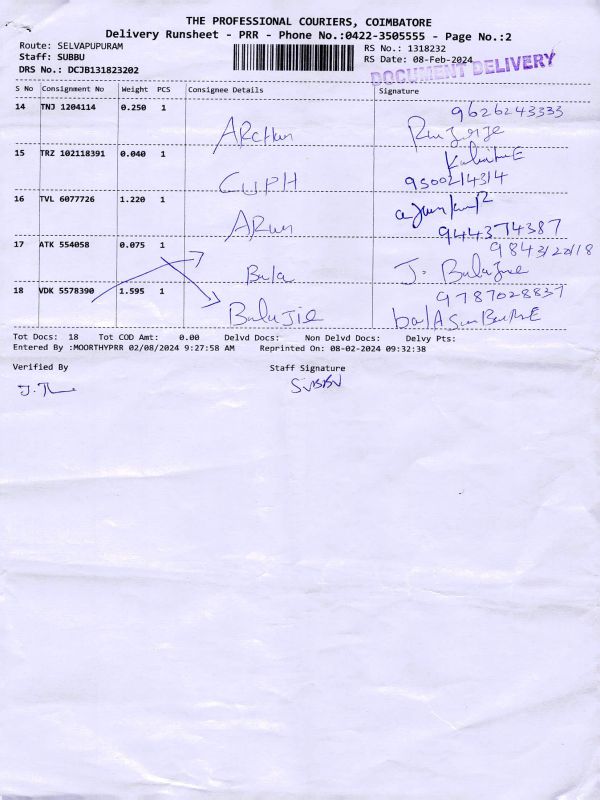 THE PROFESSIONAL COURIERS, COIMBATORE
Delivery Runsheet - PRR - Phone No.:0422-3505555 - Page No.:2
Route: SELVAPUPURAM
RS No.: 1318232
Staff: SUBBU
RS Date: 08-Feb-2024
DRS No.: DCJB131823202
DOCUMENT DELIVERY
S No Consignment No Weight PCS Consignee Details Signature
14 TNJ 1204114 0.250 1
9626243333
15 TRZ 102118391 0.040 1
CUPH
9500214314
16 TVL 6077726 1.220 1
ARun
9444374387
17 ATK 554058 0.075 1
9843120118
Bala
J. Balajee
18 VDK 5578390 1.595 1
9787028837
Balujie
Tot Docs: 18 Tot COD Amt: 0.00 Delvd Docs: Non Delvd Docs: Delvy Pts:
Entered By :MOORTHYPRR 02/08/2024 9:27:58 AM Reprinted On: 08-02-2024 09:32:38
Verified By Staff Signature
SUBBU